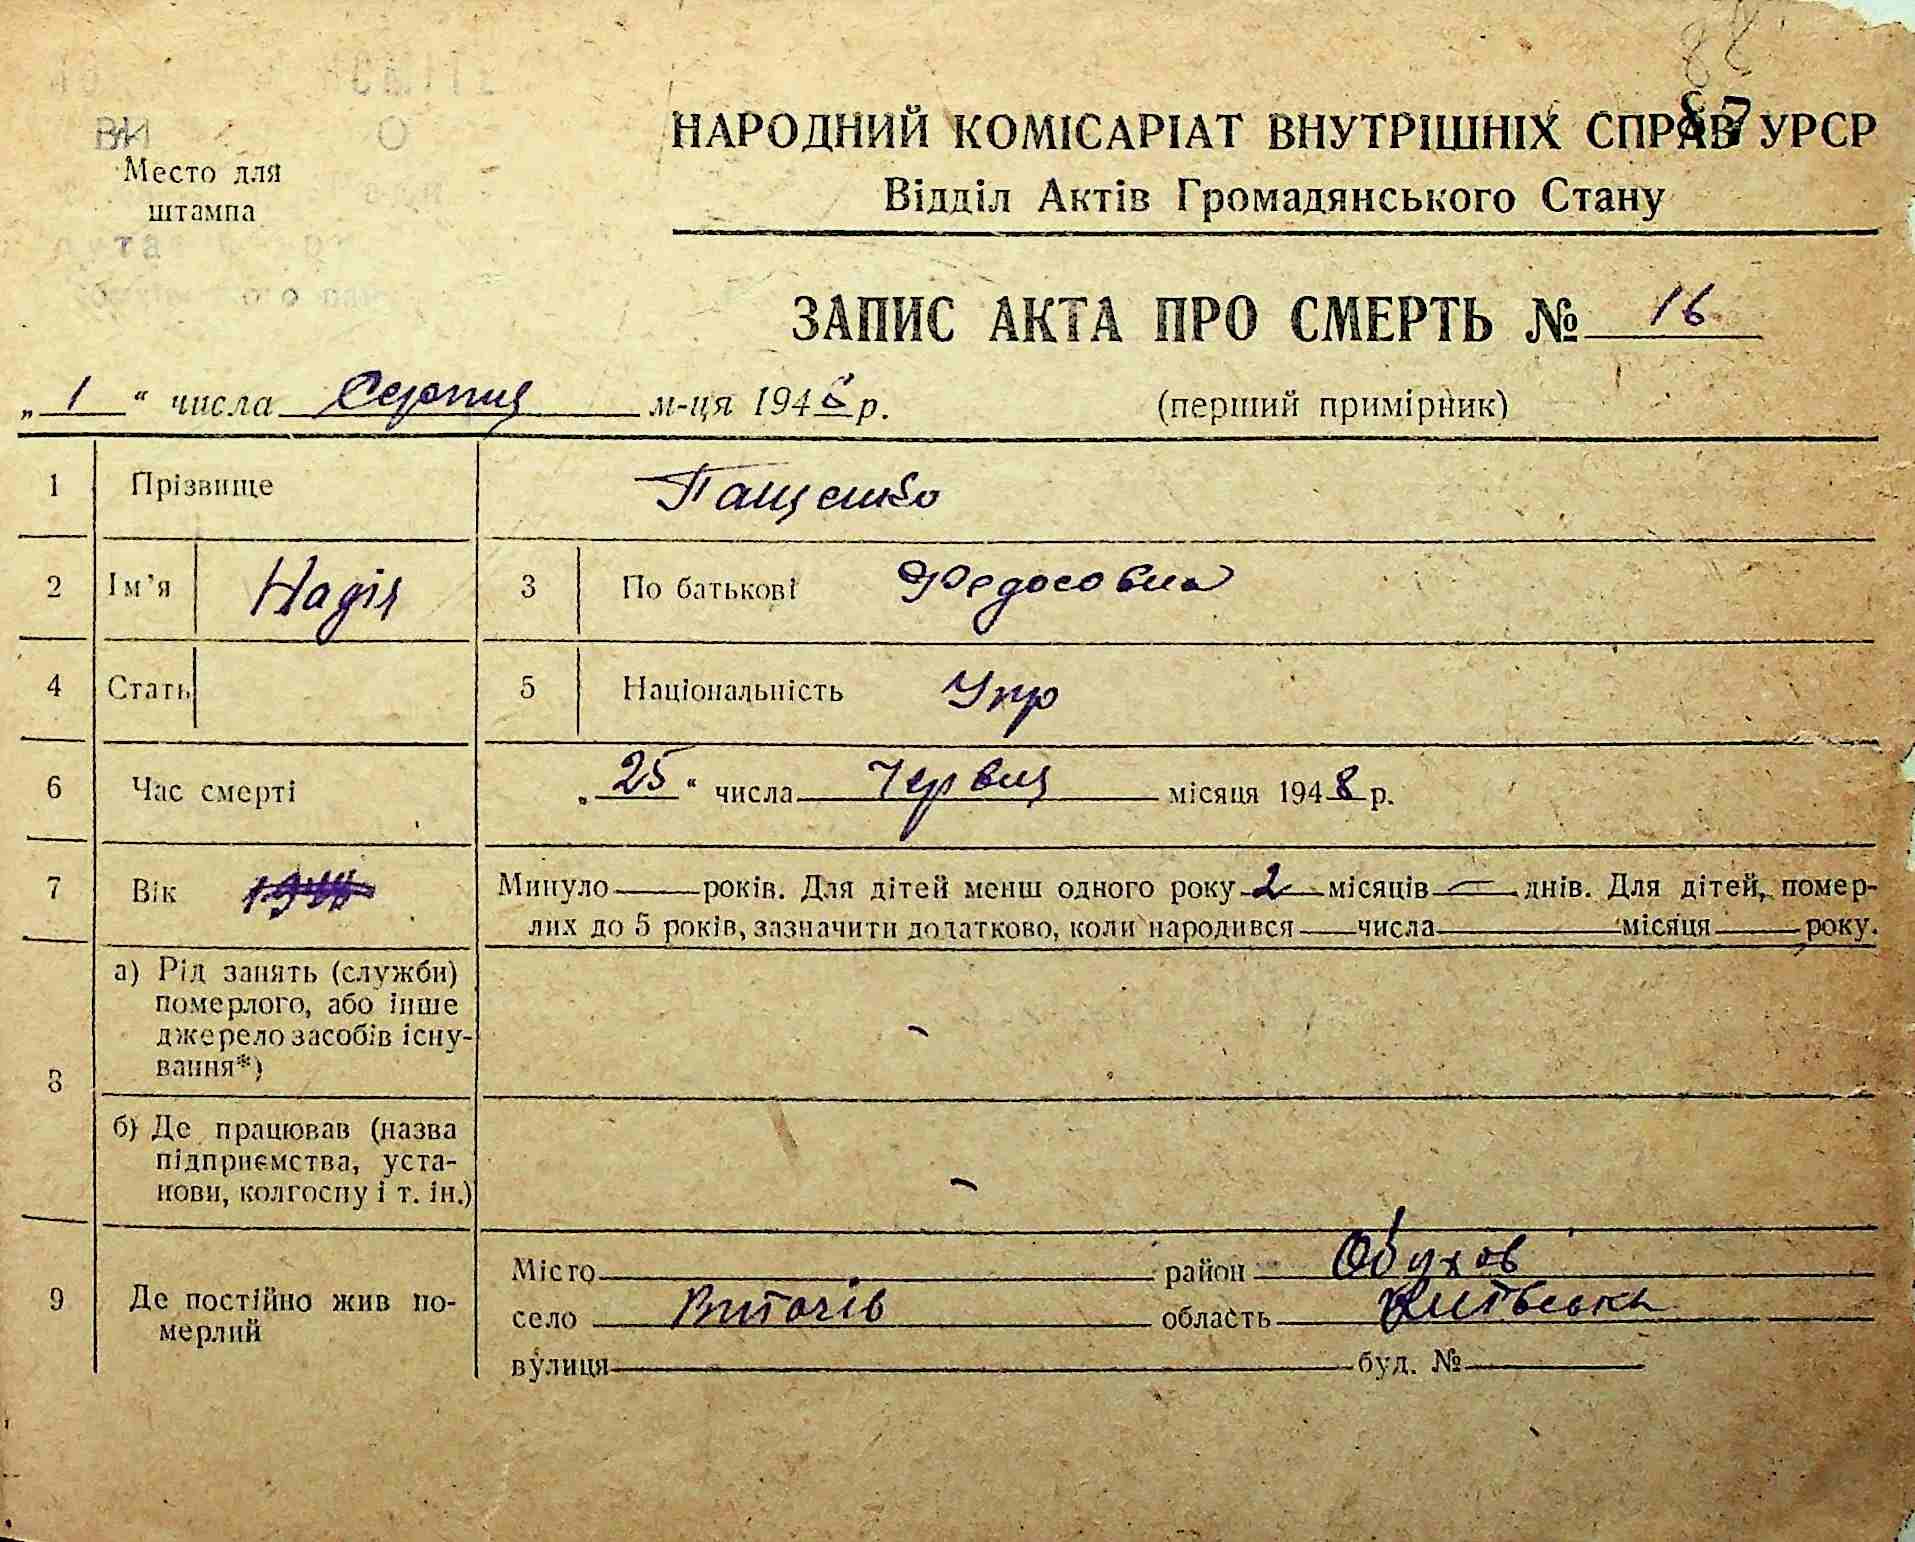 87
НАРОДНИЙ КОМІСАРІАТ ВНУТРІШНІХ СПРАВ УРСР
Відділ Актів Громадянського Стану
Место для
штампа
ЗАПИС АКТА ПРО СМЕРТЬ № 16
„ 1 “ числа Серпня м-ця 1948 р. (перший примірник)
1 Прізвище Пащенко
2 Ім'я Надія 3 По батькові Федосовна
4 Стать 5 Національність Укр
6 Час смерті „ 25 “ числа Червня місяця 1948 р.
7 Вік Минуло років. Для дітей менш одного року 2 місяців — днів. Для дітей, помер-
лих до 5 років, зазначити додатково, коли народився числа місяця року.
8 а) Рід занять (служби)
померлого, або інше
джерело засобів існу-
вання*)
б) Де працював (назва
підприємства, уста-
нови, колгоспу і т. ін.)
9 Де постійно жив по-
мерлий
Місто район Обухов
село Витачів область Київська
вулиця буд. №